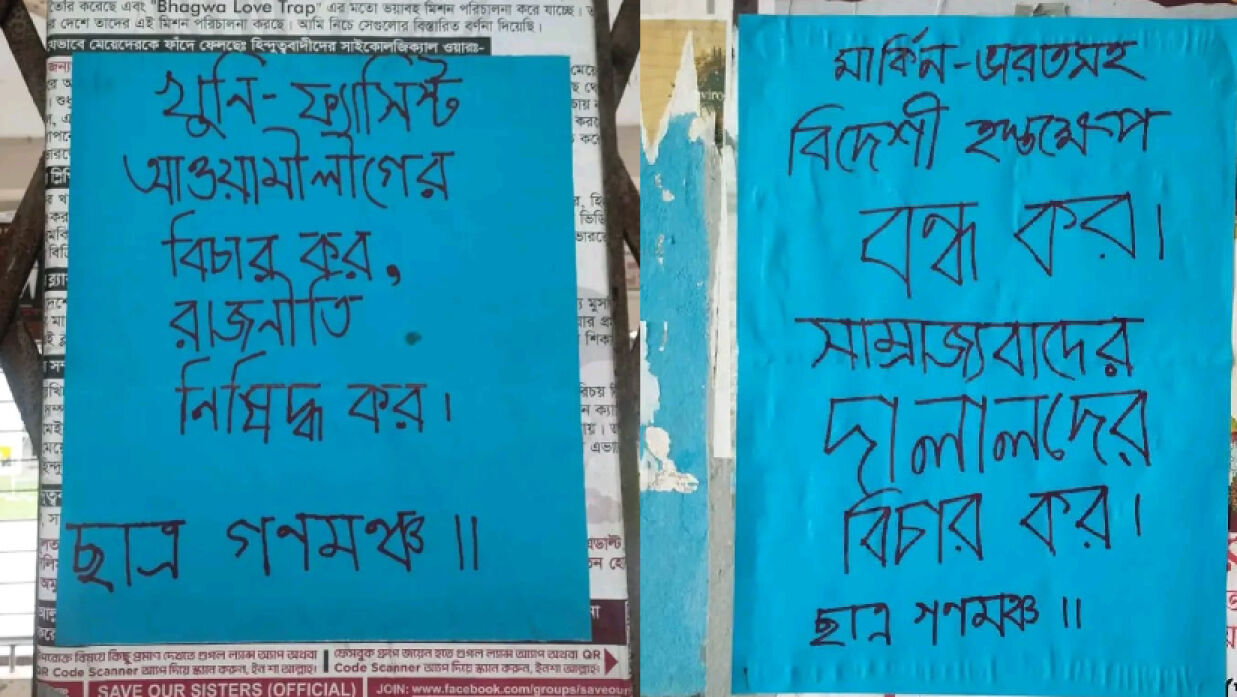 তৈরি করেছে এবং "Bhagwa Love Trap" এর মতো ভয়াবহ মিশন পরিচালনা করে যাচ্ছে।
র দেশে তাদের এই মিশন পরিচালনা করছে। আমি নিচে সেগুলোর বিস্তারিত বর্ণনা দিয়েছি।
যেভাবে মেয়েদেরকে ফাঁদে ফেলছেঃ হিন্দুত্ববাদীদের সাইকোলজিক্যাল ওয়ারঃ-
খুনি-ফ্যাসিস্ট
আওয়ামীলীগের
বিচার কর,
রাজনীতি
নিষিদ্ধ কর।
ছাত্র গণমঞ্চ ॥
QR Code Scanner অ্যাপ দিয়ে স্ক্যান করুন, ইন শা আল্লাহ।
ফেসবুক গ্রুপ জয়েন হতে গুগল ল্যান্স অ্যাপ অথবা QR
Code Scanner অ্যাপ দিয়ে স্ক্যান করুন, ইনশা আল্লাহ।
SAVE OUR SISTERS (OFFICIAL)
JOIN: www.facebook.com/groups/saveour
মার্কিন-ভারতসহ
বিদেশী হস্তক্ষেপ
বন্ধ কর।
সাম্রাজ্যবাদের
দালালদের
বিচার কর।
ছাত্র গণমঞ্চ ॥